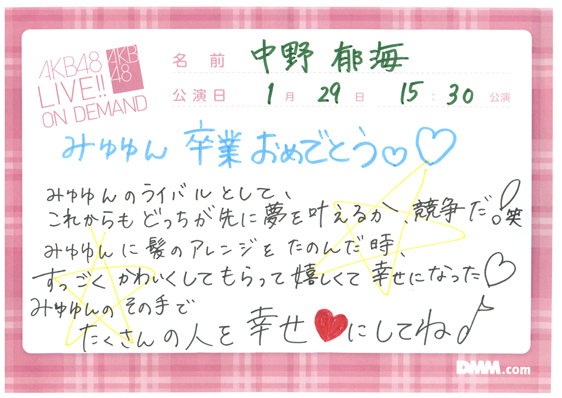 AKB48
LIVE!!
ON DEMAND
AKB
48
名前 中野 郁海
公演日 1月 29日 15:30公演
みゆゆん 卒業おめでとう♡♡
みゆゆんのライバルとして、
これからもどっちが先に夢を叶えるか、競争だ!笑
みゆゆんに髪のアレンジをたのんだ時、
すっごくかわいくしてもらって嬉しくて幸せになった♡
みゆゆんのその手で
たくさんの人を幸せ♥にしてね♪
DMM.com